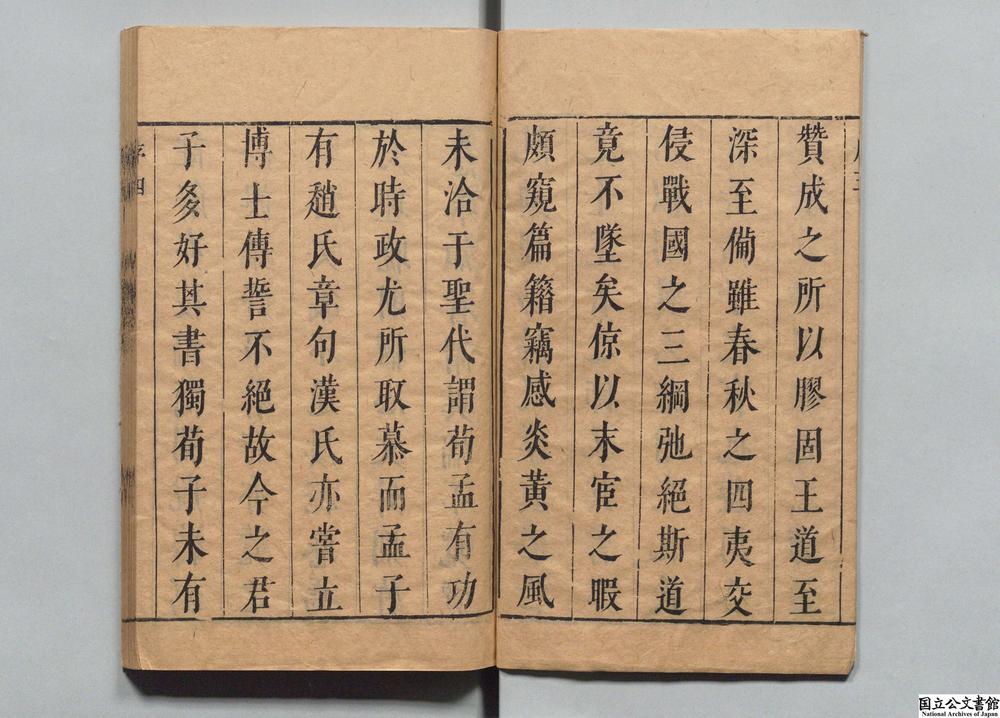 贊成之所以膠固王道至
深至備雖春秋之四夷交
侵戰國之三綱弛絕斯道
竟不墜矣倞以末宦之暇
頗窺篇籍竊感炎黃之風
未洽于聖代謂荀孟有功
於時政尤所耽慕而孟子
有趙氏章句漢氏亦嘗立
博士傳誓不絕故今之君
子多好其書獨荀子未有
序四
国立公文書館
National Archives of Japan